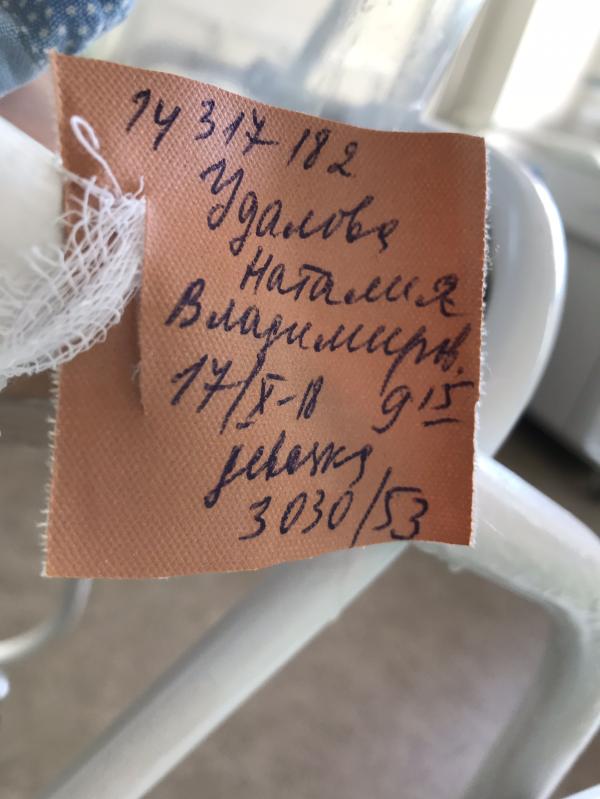 14317-182
Удалова
Наталия
Владимиров.
17/X-18 9 15
девочка
3030/53